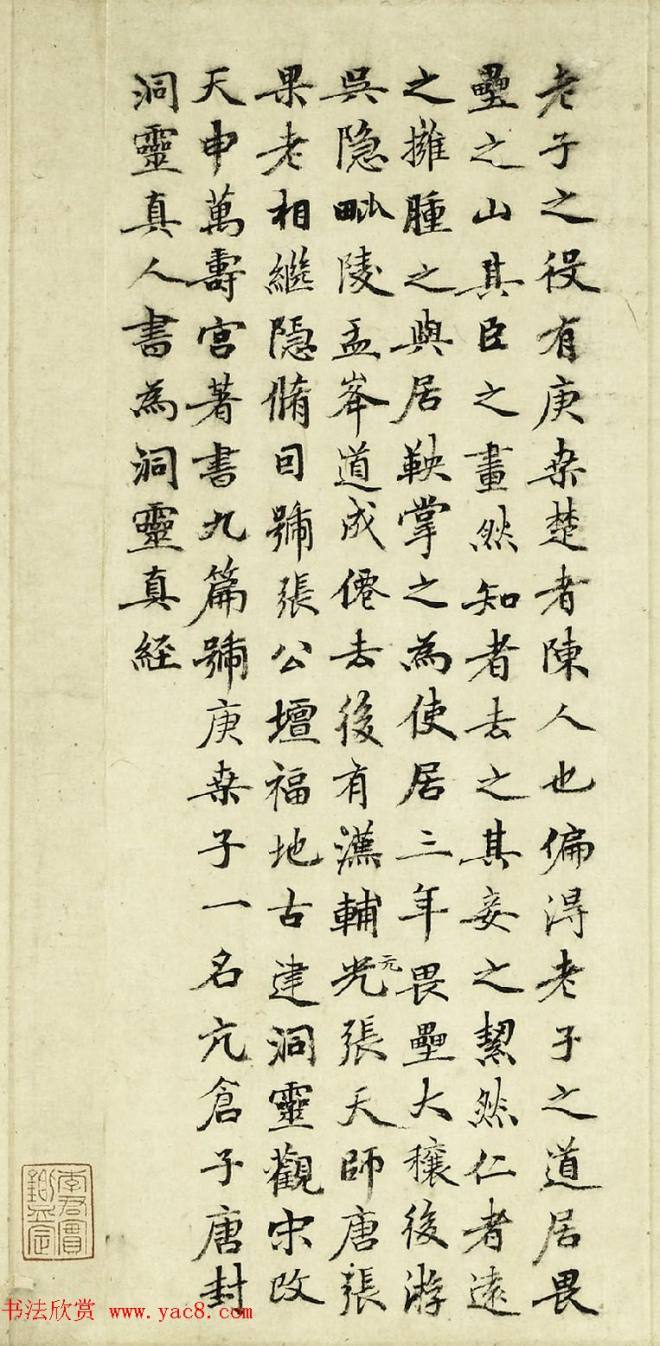 老子之役有庚桒楚者陳人也偏淂老子之道居畏
壘之山其臣之畫然知者去之其妾之絜然仁者遠
之擁腫之與居鞅掌之為使居三年畏壘大穰後游
吳隐毗陵盂峯道成僊去後有漢輔光元張天師唐張
果老相繼隠脩目號張公壇福地古建洞靈觀宋改
天申萬壽宮著書九篇號庚桒子一名亢倉子唐封
洞靈真人書為洞靈真経
李君實鑒定
书法欣赏 www.yac8.com